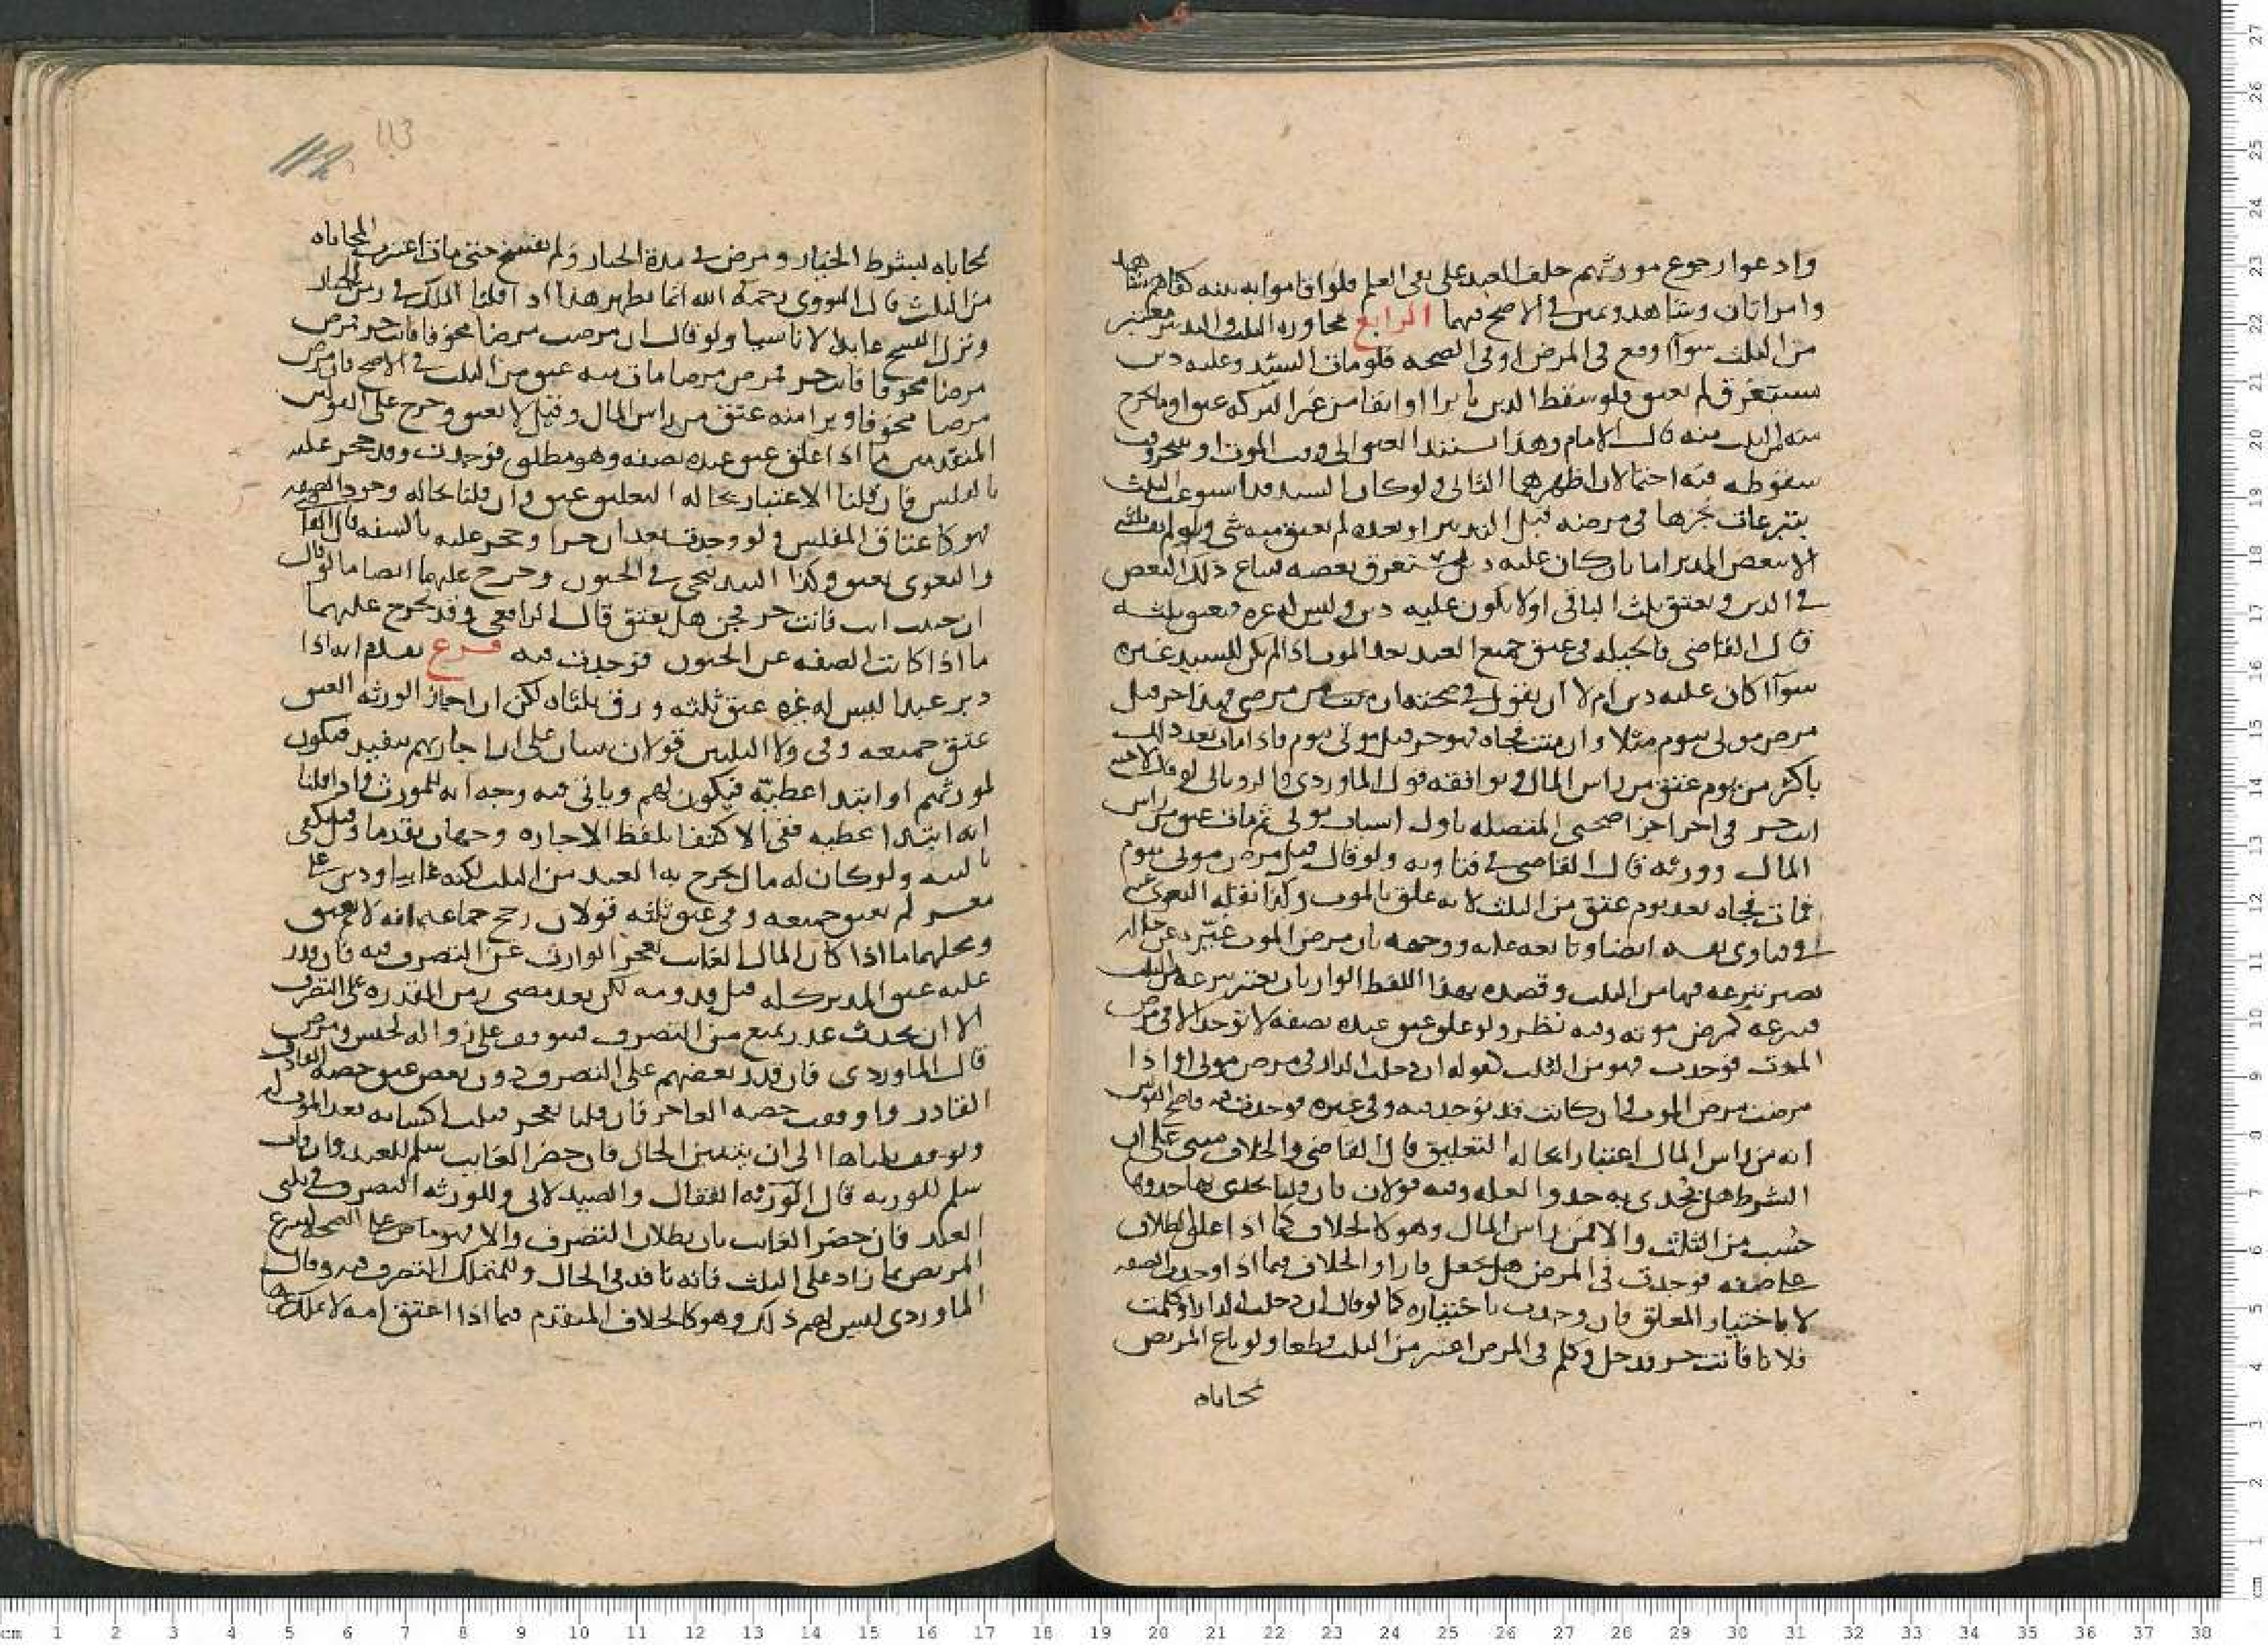 وادعوا رجوع مورثهم حلف العبد على نفي العلم فلو اقاموا به بينه كفاهم شاهد
وامراتان وشاهد ويمين في الاصح فيهما الرابع مجاوزه الثلث والتدبير معتبر
من الثلث سوآا وقع في المرض او في الصحه فلو مات السيد وعليه دين
مستغرق لم يعتق فلو سقط الدين بابرا او ايفا من غير التركه عتق او ما يخرج
منه من الثلث منه قال الامام وهذا استند العتق الى وقت الموت او وقت
سقوطه فيه احتمالان اظهرهما الثاني ولو كان السيد قد استوعب الثلث
بتبرعات نجزها في مرضه قبل التدبير او بعده لم يعتق منه شي ولو لم
الا بعض المدبر اما بان كان عليه دين يستغرق بعضه فيباع ذلك البعض
في الدين ويعتق ثلث الباقي اولا يكون عليه دين وليس له غيره فيعتق ثلثه
قال القاضي والحيله في عتق جميع العبد بعد الموت اذا لم يكن للسيد غيره
سوآا كان عليه دين ام لا ان يقول في صحته ان مت من مرض فهذا حر قبل
مرض موتي بيوم مثلا وان مت فجاه فهو حر قبل موتي بيوم فاذا مات بعد ذلك
باكثر من يوم عتق من راس المال ويوافقه قول الماوردي والروياني لو قال لامته
انت حر في اخر اجزا صحتي المتصله باول اسباب موتي ثم مات عتق من راس
المال وورثه قال القاضي في فتاويه ولو قال قبل مرض موتي بيوم
فمات فجاه بعد يوم عتق من الثلث لانه علق بالموت وكذا نقله البغوي عنه
في فتاوي نفسه ايضا وتابعه عليه ووجهه بان مرض الموت عبر به عن حاله
يصير تبرعه فيها من الثلث وقصده بهذا اللفظ الوارث ان يعتبر تبرعه من الثلث
فيه كمرض موته وفيه نظر ولو علق عتق عبده بصفه لا توجد الا في مرض
الموت فوجدت فهو من الثلث كقوله ان دخلت الدار في مرض موتي او اذا
مرضت مرض الموت وان كانت قد توجد فيه وفي غيره فوجدت فيه فاصح القولين
انه من راس المال اعتبارا بحاله التعليق قال القاضي والخلاف مبني على ان
الشرط هل يحدى به حدو العله وفيه قولان فان قلنا يحدى بها حدوها
حُسب من الثلث والا فمن راس المال وهو كالخلاف كما اذا علق الطلاق
على صفه فوجدت في المرض هل يجعل فارا والخلاف فيما اذا وجدت الصفه
لا باختيار المعلق فان وجدت باختياره كما لو قال ان دخلت الدار او كلمت
فلانا فانت حر ودخل وكلم في المرض اعتبر من الثلث قطعا ولو باع المريض
محاباه
محاباه بشرط الخيار ومرض في مدة الخيار ولم يفسخ حتى مات اعتبرت المحاباه
من الثلث قال النووي رحمه الله انما يظهر هذا اذا قلنا الملك في زمن الخيار
وترك الفسخ عامدا لا ناسيا ولو قال ان مرضت مرضا مخوفا فانت حر فمرض
مرضا مخوفا فانت حر فمرض مرضا مات منه عتق من الثلث في الاصح فان مرض
مرضا مخوفا وبرا منه عتق من راس المال وقيل لا يعتق وخرج على القولين
المتقدمين ما اذا علق عتق عبده بصفه وهو مطلق فوجدت وقد حجر عليه
بالفلس فان قلنا الاعتبار بحاله التعليق عتق وان قلنا بحاله وجود الصفه
فهو كاعتاق المفلس ولو وجدت بعد ان حجر عليه بالسفه قال
والبغوي يعتق وكذا التدبير في الجنون وخرج عليهما ايضا ما لو قال
ان جننت فانت حر فجن هل يعتق قال الرافعي وقد يخرج عليهما
ما اذا كانت الصفه غير الجنون فوجدت فيه فرع تقدم انه اذا
دبر عبدا ليس له غيره عتق ثلثه ورق ثلثاه لكن ان اجاز الورثه العتق
عتق جميعه وفي ولا الثلثين قولان بنيان على ان اجازتهم تنفيذ فيكون
لمورثهم او ابتدا عطيّه فيكون لهم وياتي فيه وجه انه للمورث وان قلنا
انه ابتدا عطيه ففي الاكتفا بلفظ الاجازه وجهان تقدما وقيل يكفي
بالنيه ولو كان له مال يخرج به العبد من الثلث لكنه غايب او دين على
معسر لم يعتق جميعه وفي عتق ثلثه قولان رجح جماعه انه لا يعتق
ومحلهما ما اذا كان المال الغايب يعجز الوارث عن التصرف فيه فان قدر
عليه عتق المدبر كله قبل قدومه لكن بعد مضي زمن القدره على التصرف
الا ان يحدث عذر يمنع من التصرف فيوقف على زواله لحبس ومرض
قال الماوردي فان قدر بعضهم على التصرف دون بعض عتق حصه
القادر واوقفت حصه العاجز فان قلنا يعجز فثلث اكسابه بعد الموت له
ويوقف ثلثاها الى ان يتبين الحال فان حضر الغايب سلم للعبد وان فات
سلم للورثه قال الورثه القفال والصيدلاني وللورثه التصرف في ثلثي
العبد فان حضر الغايب بان بطلان التصرف والا فهو ماض على الصحه كتبرع
المريض بما زاد على الثلث فانه نافذ في الحال وللمتملك التصرف فيه وقال
الماوردي ليس لهم ذلك وهو كالخلاف المتقدم فيما اذا اعتق امه لا يملك غيرها
113